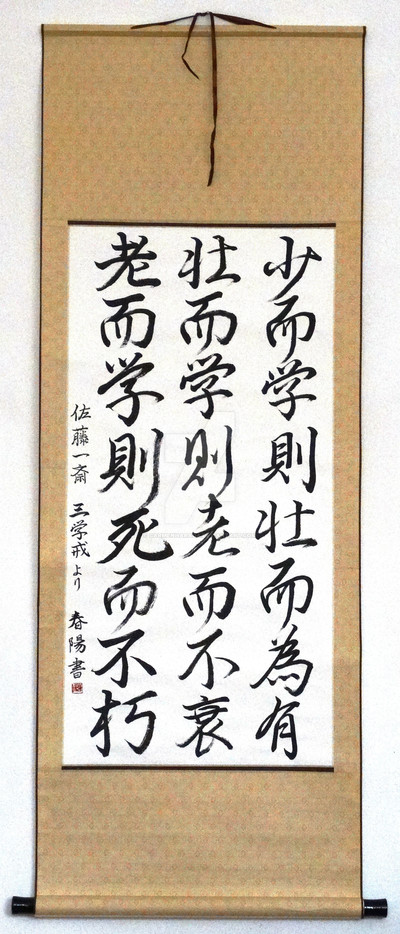 少而学則壮而為有
壮而学則老而不衰
老而学則死而不朽
佐藤一斎 三学戒より 春陽書